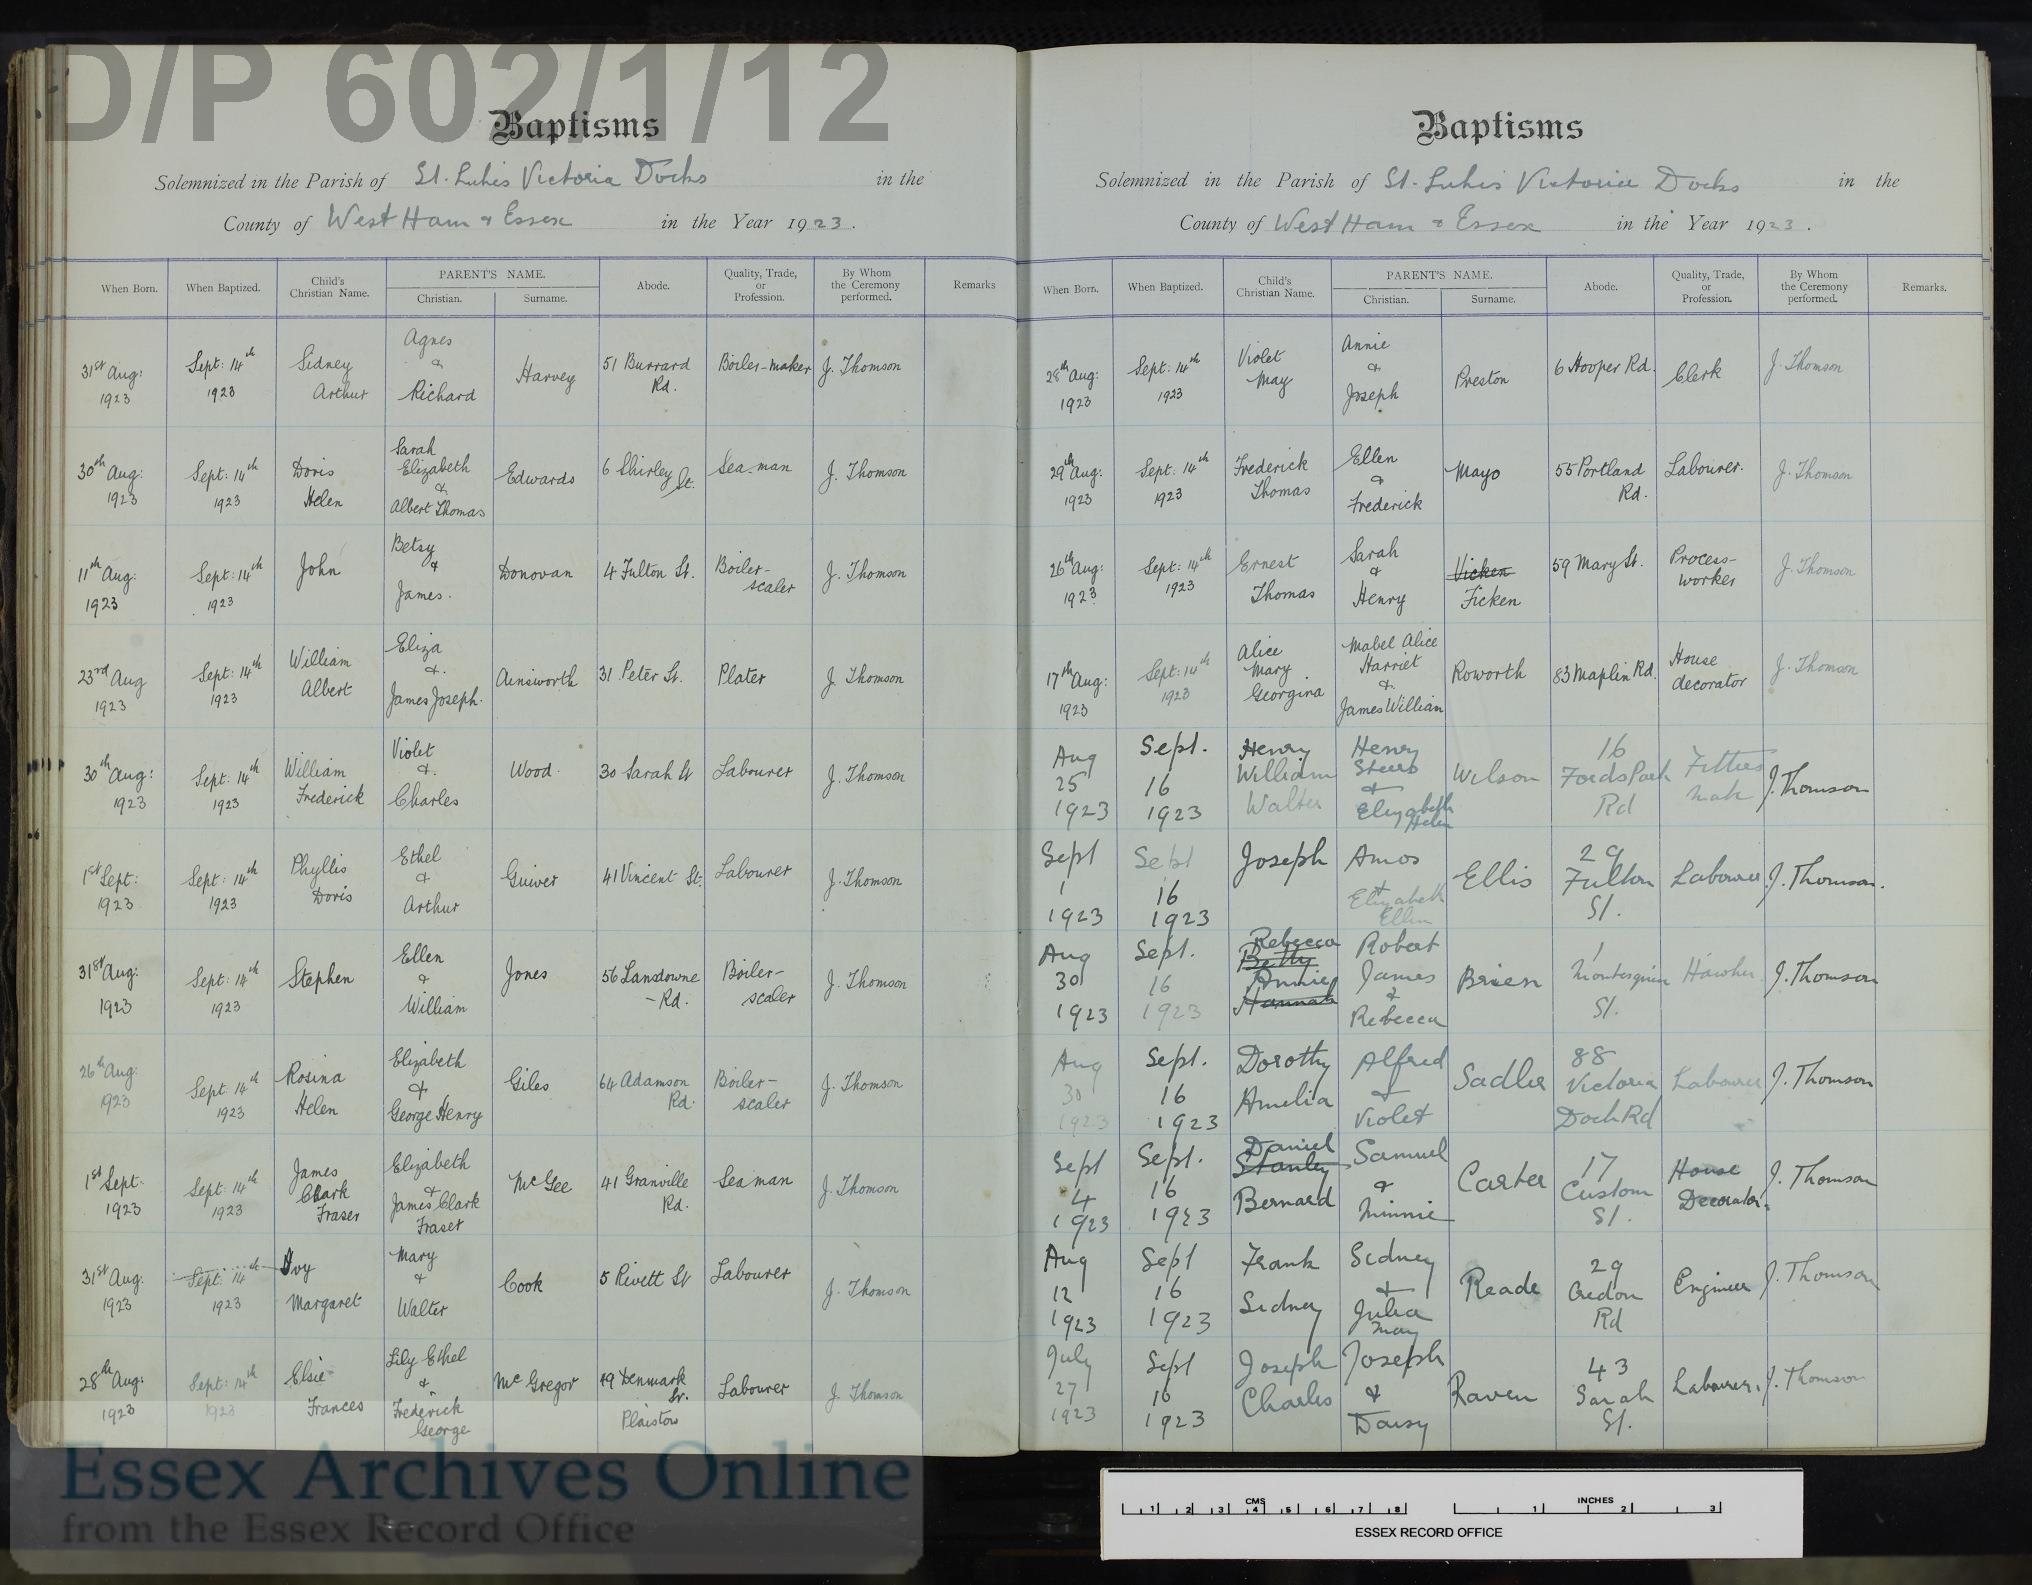 D/P 602/1/12
Baptisms
Solemnized in the Parish of St. Luke's Victoria Docks in the
County of West Ham & Essex in the Year 1923.
When Born. When Baptized. Child's Christian Name. PARENT'S NAME. Christian. Surname. Abode. Quality, Trade, or Profession. By Whom the Ceremony performed. Remarks
31st Aug: 1923 Sept: 14th 1923 Sidney Arthur Agnes & Richard Harvey 51 Burrard Rd. Boiler-maker J. Thomson
30th Aug: 1923 Sept: 14th 1923 Doris Helen Sarah Elizabeth & Albert Thomas Edwards 6 Shirley St. Seaman J. Thomson
11th Aug: 1923 Sept: 14th 1923 John Betsy & James. Donovan 4 Fulton St. Boiler-scaler J. Thomson
23rd Aug 1923 Sept: 14th 1923 William Albert Eliza &. James Joseph. Ainsworth 31 Peter St. Plater J. Thomson
30th Aug: 1923 Sept: 14th 1923 William Frederick Violet &. Charles Wood. 30 Sarah St Labourer J. Thomson
1st Sept: 1923 Sept: 14th 1923 Phyllis Doris Ethel & Arthur Guiver 41 Vincent St. Labourer J. Thomson
31st Aug: 1923 Sept: 14th 1923 Stephen Ellen & William Jones 56 Lansdowne - Rd. Boiler-scaler J. Thomson
26th Aug: 1923 Sept: 14th 1923 Rosina Helen Elizabeth & George Henry Giles 64 Adamson Rd. Boiler-scaler J. Thomson
1st Sept. 1923 Sept: 14th 1923 James Clark Fraser Elizabeth & James Clark Fraser McGee 41 Granville Rd. Seaman J. Thomson
31st Aug: 1923 Sept: 14th 1923 Ivy Margaret Mary & Walter Cook 5 Rivett St Labourer J. Thomson
28th Aug: 1923 Sept: 14th 1923 Elsie Frances Lily Ethel & Frederick George McGregor 49 Denmark St. Plaistow Labourer J. Thomson
Baptisms
Solemnized in the Parish of St. Luke's Victoria Docks in the
County of West Ham & Essex in the Year 1923.
When Born. When Baptized. Child's Christian Name. PARENT'S NAME. Christian. Surname. Abode. Quality, Trade, or Profession. By Whom the Ceremony performed. Remarks.
28th Aug: 1923 Sept: 14th 1923 Violet May Annie & Joseph Preston 6 Hooper Rd. Clerk J. Thomson
29th Aug: 1923 Sept: 14th 1923 Frederick Thomas Ellen & Frederick Mayo 55 Portland Rd. Labourer. J. Thomson
26th Aug: 1923 Sept: 14th 1923 Ernest Thomas Sarah & Henry Vicken Ficken 59 Mary St. Process-worker J. Thomson
17th Aug: 1923 Sept: 14th 1923 Alice Mary Georgina Mabel Alice Harriet &. James William Roworth 83 Maplin Rd. House decorator J. Thomson
Aug 25 1923 Sept. 16 1923 Henry William Walter Henry & Elizabeth Helen Wilson 16 Fords Park Rd Fitters J. Thomson
Sept 1 1923 Sept 16 1923 Joseph Amos & Elizabeth Ellen Ellis 29 Fulton St. Labourer J. Thomson.
Aug 30 1923 Sept. 16 1923 Rebecca Betty Annie Hannah Robert James & Rebecca Brien 1 Montesquieu St. Hawker J. Thomson
Aug 30 1923 Sept. 16 1923 Dorothy Amelia Alfred & Violet Sadler 88 Victoria Dock Rd Labourer J. Thomson
Sept 4 1923 Sept. 16 1923 Daniel Stanley Bernard Samuel & Minnie Carter 17 Custom St. House Decorator. J. Thomson
Aug 12 1923 Sept 16 1923 Frank Sidney Sidney & Julia May Reade 29 Credon Rd Engineer J. Thomson
July 27 1923 Sept 16 1923 Joseph Charles Joseph & Daisy Raven 43 Sarah St. Labourer. J. Thomson
Essex Archives Online
from the Essex Record Office
CMS 1 2 3 4 5 6 7 8 INCHES 1 2 3
ESSEX RECORD OFFICE